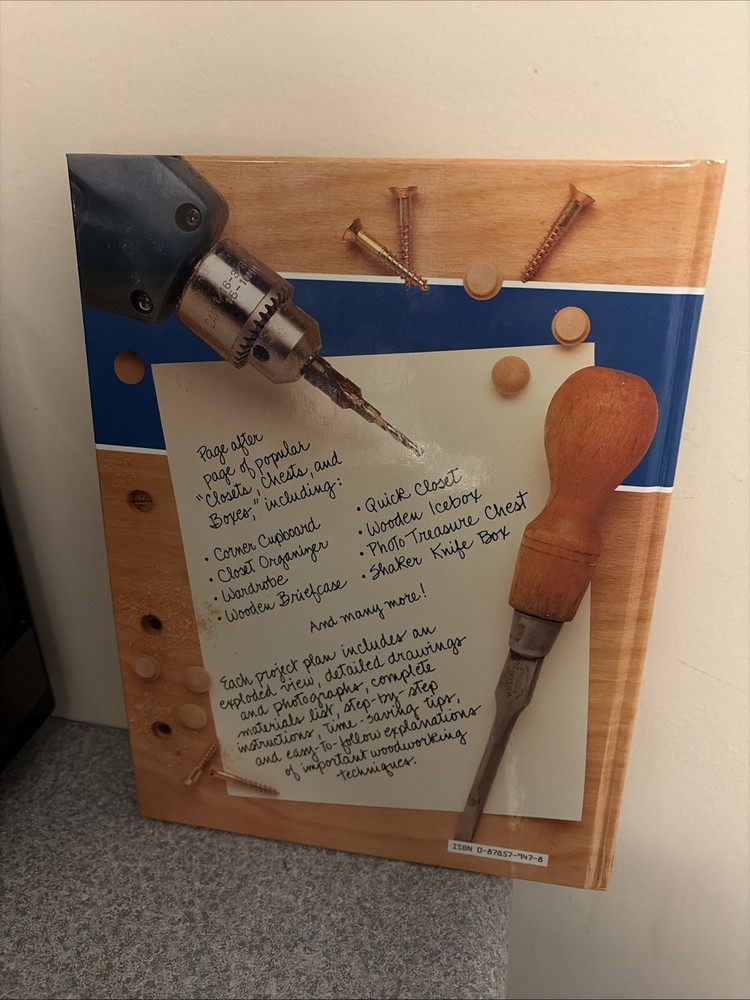 Page after
page of popular
"Closets, Chests, and
Boxes," including:
• Corner Cupboard
• Closet Organizer
• Wardrobe
• Wooden Briefcase
• Quick Closet
• Wooden Icebox
• Photo Treasure Chest
• Shaker Knife Box
And many more!
Each project plan includes an
exploded view, detailed drawings
and photographs, complete
materials list, step-by-step
instructions, time-saving tips,
and easy-to-follow explanations
of important woodworking
techniques.
ISBN 0-87857-947-8